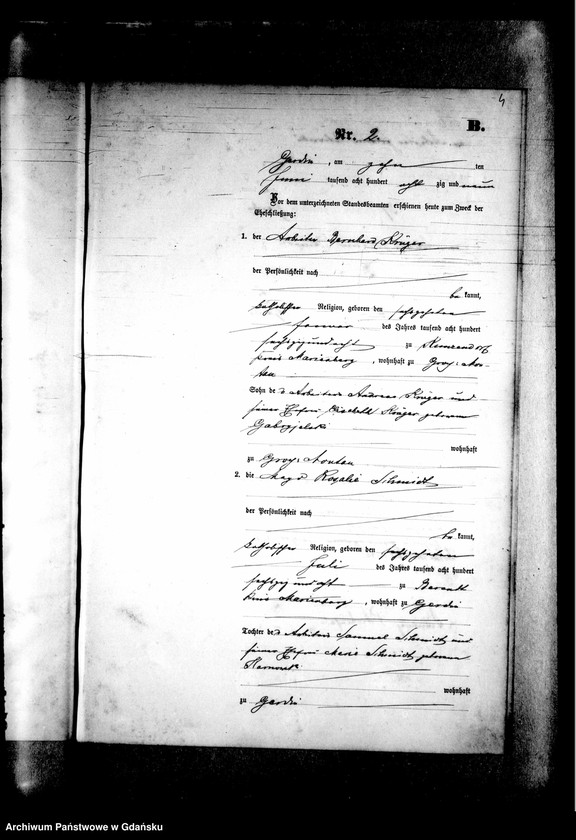 4
B.
Nr. 2.
Gardin, am zehn ten
Juni tausend acht hundert acht zig und neun
Vor dem unterzeichneten Standesbeamten erschienen heute zum Zweck der
Eheschließung:
1. der Arbeiter Bernhard Krüger
der Persönlichkeit nach
be kannt,
katholischer Religion, geboren den sechszehnten
Januar des Jahres tausend acht hundert
sechszig und acht zu
Kreis Marienberg, wohnhaft zu Groß: Mon-
tau
Sohn de s Arbeiters Andreas Krüger und
seiner Ehefrau Krüger geborene
wohnhaft
zu Groß: Montau
2. die Magd Rosalie Schmidt
der Persönlichkeit nach
be kannt,
katholischer Religion, geboren den sechszehnten
Juli des Jahres tausend acht hundert
sechszig und acht zu
Kreis Marienberg, wohnhaft zu Gardin
Tochter des Arbeiters Sammel Schmidt und
seiner Ehefrau Marie Schmidt geborene
wohnhaft
zu Gardin
Archiwum Państwowe w Gdańsku